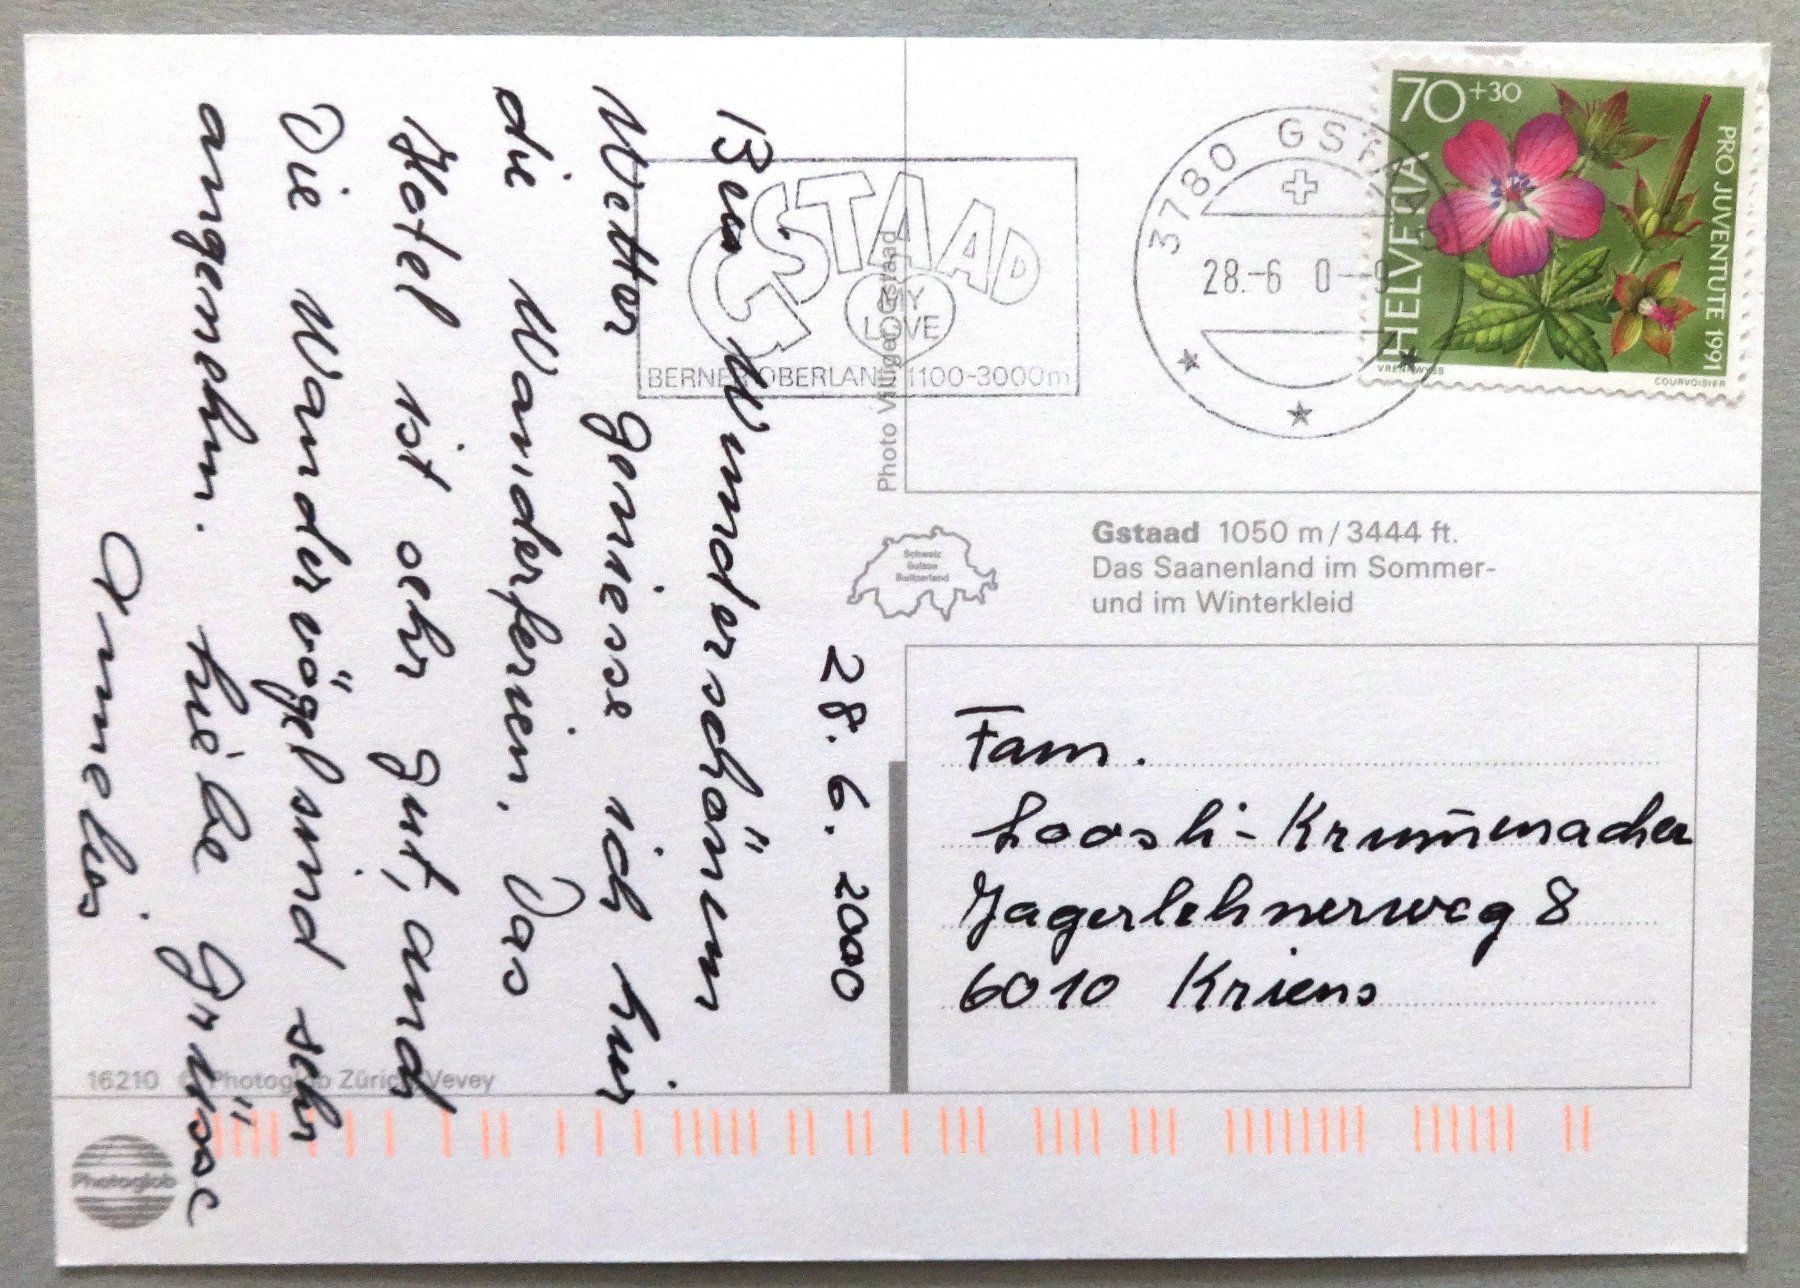 28. 6. 2000
Bei Wunderschönem
Wetter geniesse ich hier
die Wanderferien. Das
Hotel ist sehr gut, und
Die Wandervögel sind sehr
angenehm. Liebe Grüsse
Annelis
GSTAAD
MY
LOVE
BERNER OBERLAND 1100-3000m
Photo Villiger, Gstaad
3780 GSTAAD
28.-6 0--9
70+30
HELVETIA
PRO JUVENTUTE 1991
VRENI WYSS
COURVOISIER
Schweiz
Suisse
Switzerland
Gstaad 1050 m / 3444 ft.
Das Saanenland im Sommer-
und im Winterkleid
Fam.
Loosli-Krummenacher
Jagerlehnerweg 8
6010 Kriens
16210 © Photoglob Zürich/Vevey
Photoglob